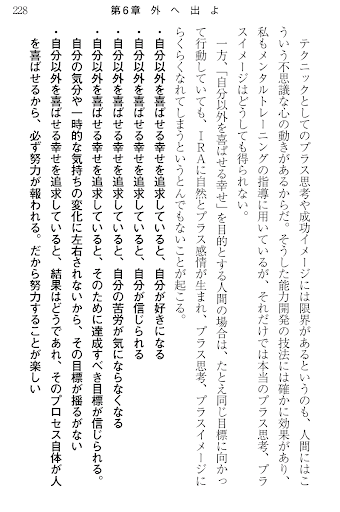 228
第6章 外へ出よ
テクニックとしてのプラス思考や成功イメージには限界があるというのも、人間にはこ
ういう不思議な心の動きがあるからだ。そうした能力開発の技法には確かに効果があり、
私もメンタルトレーニングの指導に用いているが、それだけでは本当のプラス思考、プラ
スイメージはどうしても得られない。
一方、「自分以外を喜ばせる幸せ」を目的とする人間の場合は、たとえ同じ目標に向かっ
て行動していても、ＩＲＡに自然とプラス感情が生まれ、プラス思考、プラスイメージに
らくらくなれてしまうというとんでもないことが起こる。
・自分以外を喜ばせる幸せを追求していると、自分が好きになる
・自分以外を喜ばせる幸せを追求していると、自分が信じられる
・自分以外を喜ばせる幸せを追求していると、自分の苦労が気にならなくなる
・自分以外を喜ばせる幸せを追求していると、そのために達成すべき目標が信じられる。
自分の気分や一時的な気持ちの変化に左右されないから、その目標が揺るがない
・自分以外を喜ばせる幸せを追求していると、結果はどうであれ、そのプロセス自体が人
を喜ばせるから、必ず努力が報われる。だから努力することが楽しい